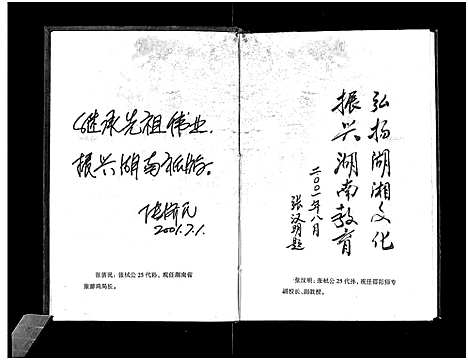 继承先祖伟业，
振兴湖南旅游。
2001.7.1.
代孙、现任湖南省
旅游局局长。
弘扬湖湘文化
振兴湖南教育
二〇〇一年八月
张汉明题
张汉明：张栻公25代孙，现任邵阳师专
副校长、副教授。